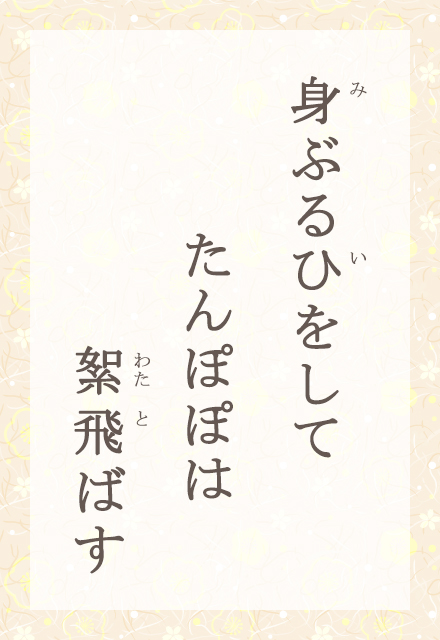 身ぶるひをして
み
い
たんぽぽは
絮飛ばす
わた
と